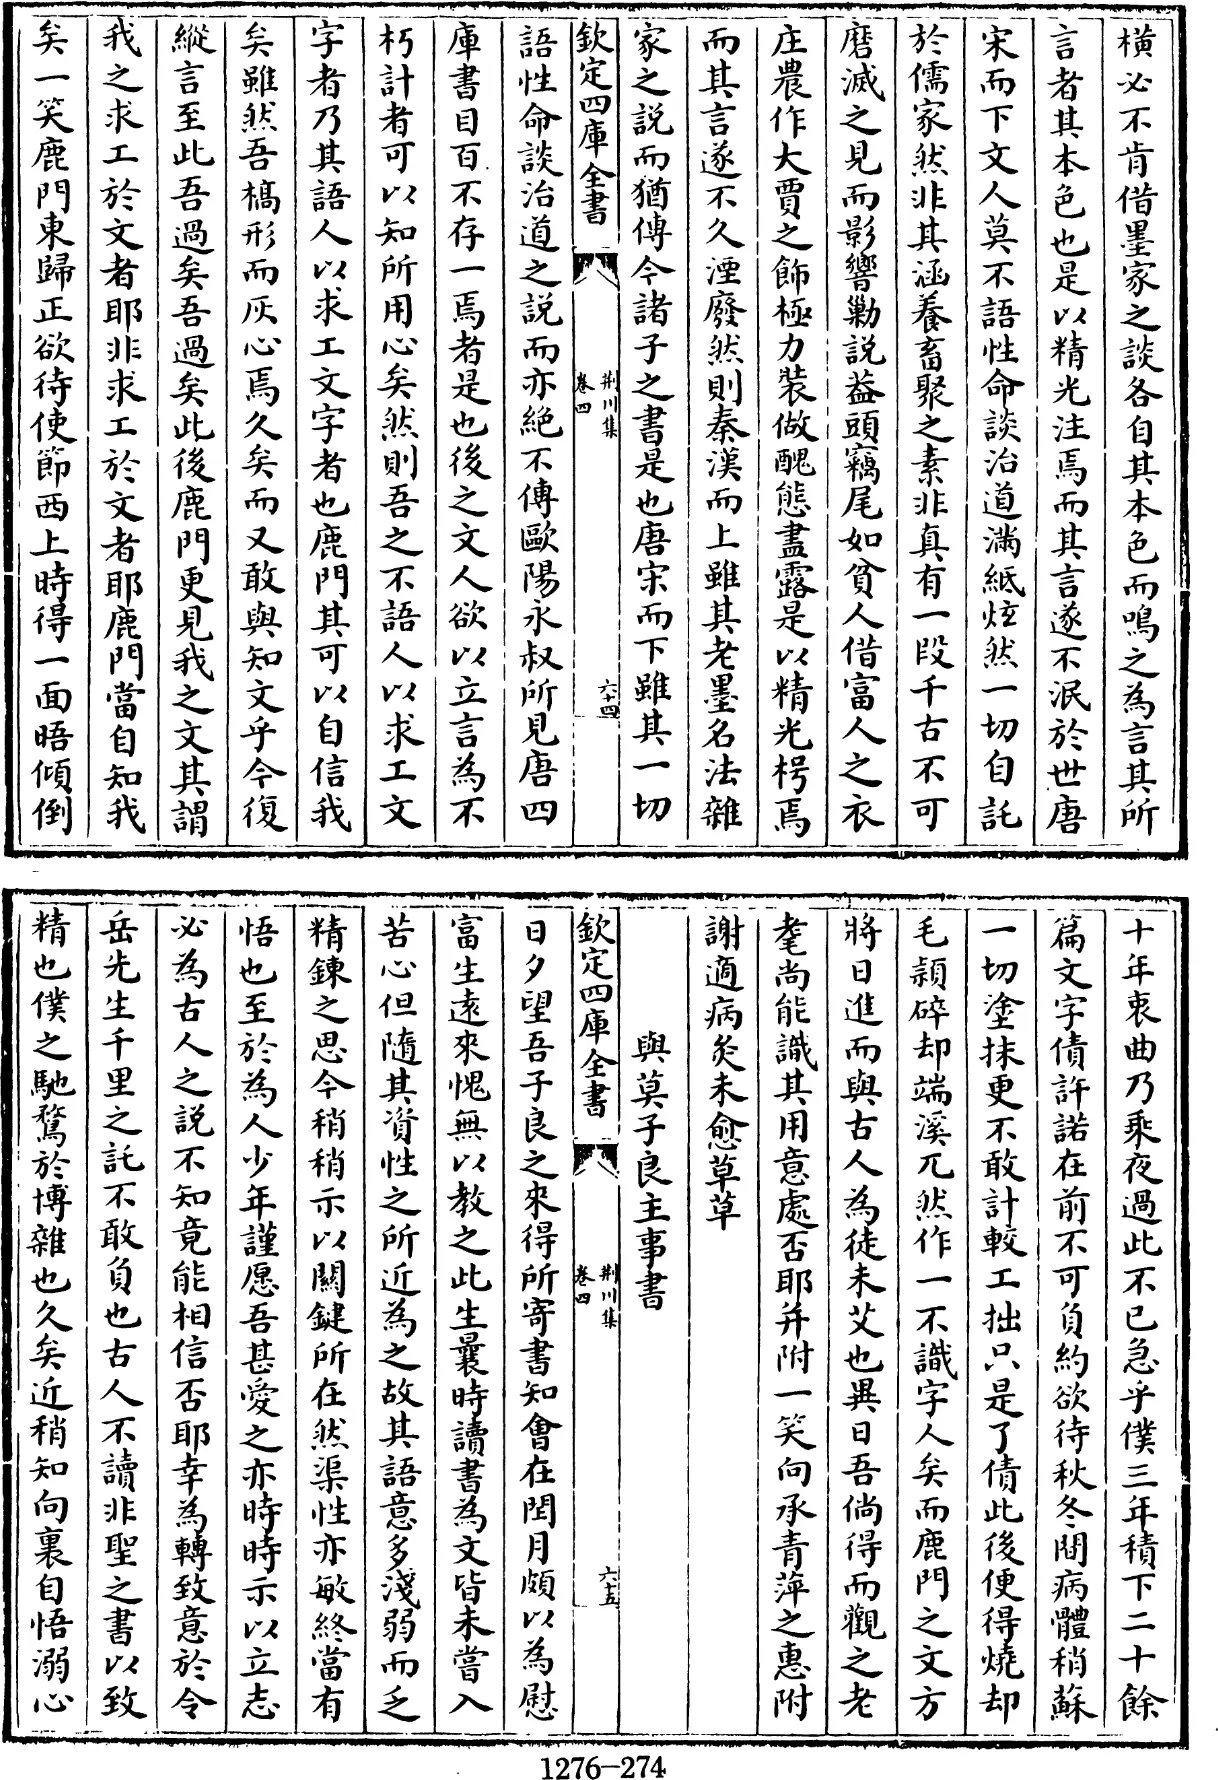 橫必不肯借墨家之談各自其本色而鳴之為言其所
言者其本色也是以精光注焉而其言遂不泯於世唐
宋而下文人莫不語性命談治道滿紙炫然一切自託
於儒家然非其涵養畜聚之素非真有一段千古不可
磨滅之見而影響勦說葢頭竊尾如貧人借富人之衣
庄農作大賈之飾極力裝做醜態盡露是以精光枵焉
而其言遂不久湮廢然則秦漢而上雖其老墨名法雜
家之說而猶傳今諸子之書是也唐宋而下雖其一切
欽定四庫全書
荆川集
卷四
六十四
語性命談治道之說而亦絕不傳歐陽永叔所見唐四
庫書目百不存一焉者是也後之文人欲以立言為不
朽計者可以知所用心矣然則吾之不語人以求工文
字者乃其語人以求工文字者也鹿門其可以自信我
矣雖然吾槁形而灰心焉久矣而又敢與知文乎今復
縱言至此吾過矣吾過矣此後鹿門更見我之文其謂
我之求工於文者耶非求工於文者耶鹿門當自知我
矣一笑鹿門東歸正欲待使節西上時得一面晤傾倒
十年衷曲乃乘夜過此不已急乎僕三年積下二十餘
篇文字債許諾在前不可負約欲待秋冬間病體稍蘇
一切塗抹更不敢計較工拙只是了債此後便得燒却
毛頴碎却端溪兀然作一不識字人矣而鹿門之文方
將日進而與古人為徒未艾也異日吾倘得而觀之老
耄尚能識其用意處否耶并附一笑向承青萍之惠附
謝適病炙未愈草草
與莫子良主事書
欽定四庫全書
荆川集
卷四
六十五
日夕望吾子良之來得所寄書知會在閏月頗以為慰
富生遠來愧無以教之此生曩時讀書為文皆未嘗入
苦心但隨其資性之所近為之故其語意多淺弱而乏
精鍊之思今稍稍示以關鍵所在然渠性亦敏終當有
悟也至於為人少年謹愿吾甚愛之亦時時示以立志
必為古人之說不知竟能相信否耶幸為轉致意於令
岳先生千里之託不敢負也古人不讀非聖之書以致
精也僕之馳騖於博雜也久矣近稍知向裏自悟溺心
1276-274